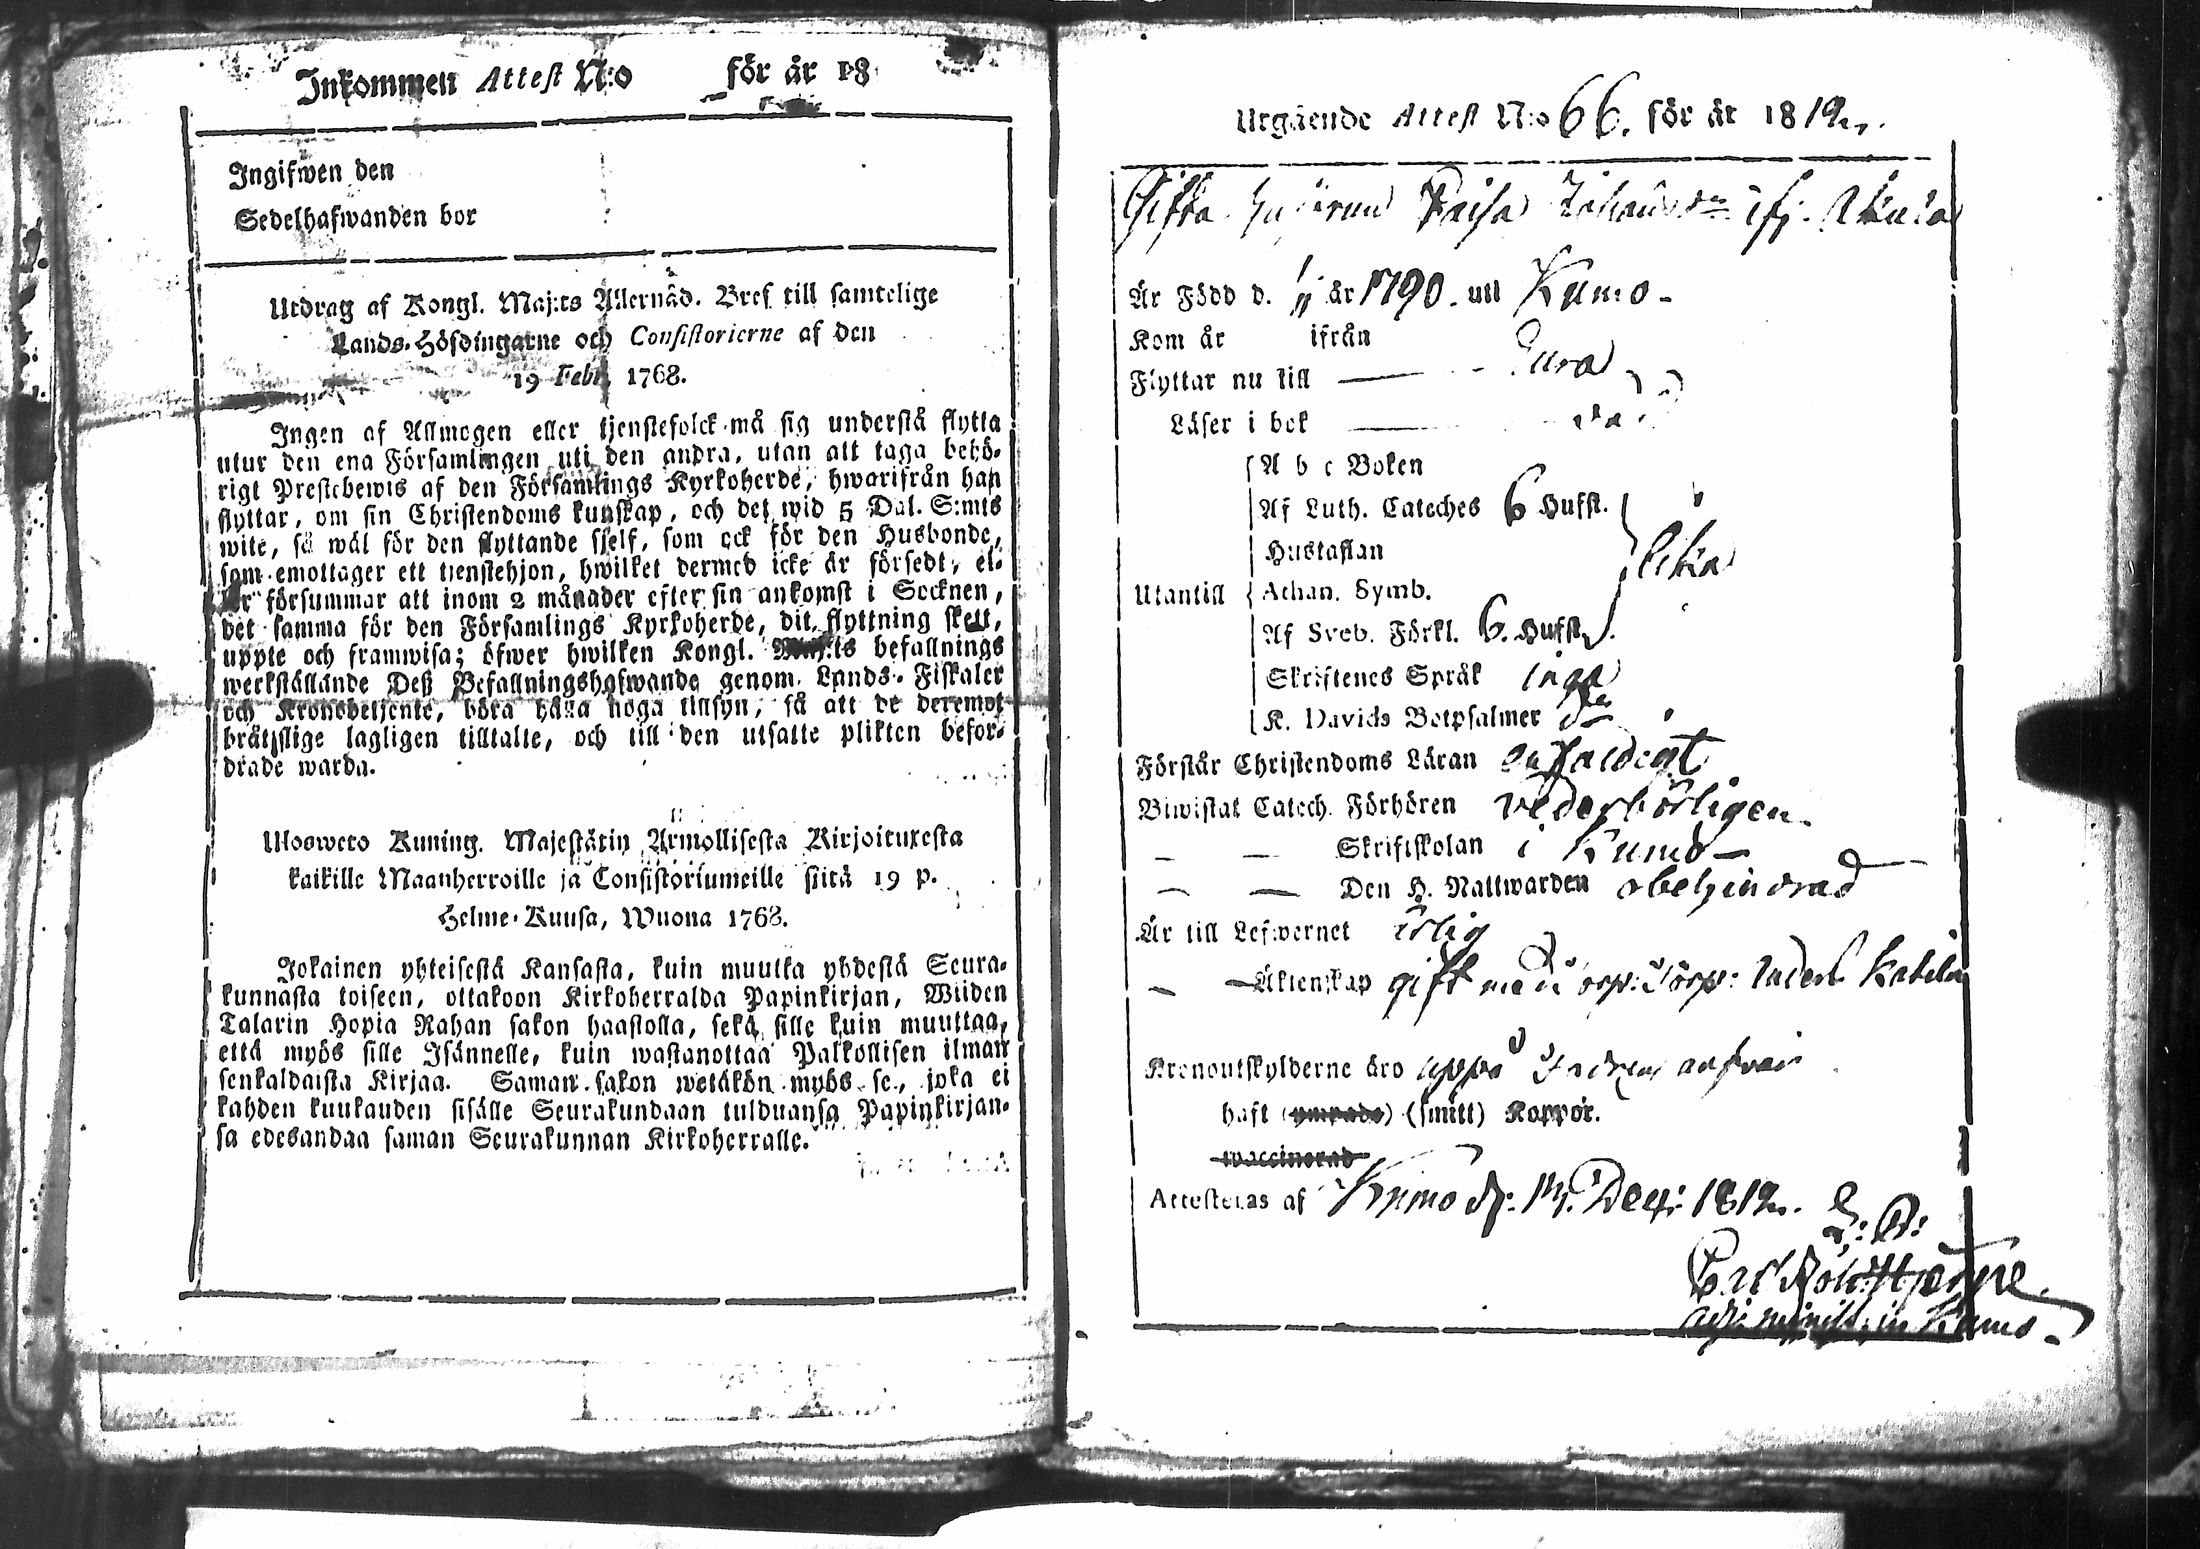 Inkommen Attest N:o för år 18
Ingifwen den
Sedelhafwanden bor
Utdrag af Kongl. Maj:ts Allernåd. Bref till samtelige
Lands-Höfdingarne och Consistorierne af den
19 Febr. 1768.
Ingen af Allmogen eller tjenstefolck må sig understå flytta
utur den ena Församlingen uti den andra, utan att taga behö-
rigt Prestebewis af den Församlings Kyrkoherde, hwarifrån han
flyttar, om sin Christendoms kunskap, och det wid 5 Dal. S:mts
wite, så wäl för den flyttande sjelf, som ock för den Husbonde,
som emottager ett tienstehjon, hwilket dermed icke är försedt, el-
ler försummar att inom 2 månader efter sin ankomst i Socknen,
det samma för den Församlings Kyrkoherde, dit flyttning skett,
uppte och framwisa; öfwer hwilken Kongl. Maj:ts befallnings
werkställande Deß Befallningshafwande genom Lands-Fiskaler
och Kronobetjente, böra hålla noga tillsyn, så att de deremot
brätzslige lagligen tilltalte, och till den utsatte plikten befor-
drade warda.
Ulosweto Kuning. Majestätin Armollisesta Kirjoituxesta
kaikille Maanherroille ja Consistoriumeille siitä 19 p.
Helme-Kuusa, Wuona 1768.
Jokainen yhteisestä Kansasta, kuin muutta yhdestä Seura-
kunnasta toiseen, ottakoon Kirkoherralda Papinkirjan, Wiiden
Talarin Hopia Rahan sakon haastolla, sekä sille kuin muuttaa,
että myös sille Isännelle, kuin wastanottaa Palkollisen ilman
senkaldaista Kirjaa. Saman sakon wetäkön myös se, joka ei
kahden kuukauden sisälle Seurakundaan tulduansa Papinkirjan-
sa edesandaa saman Seurakunnan Kirkoherralle.
Utgående Attest N:o 66. för år 1819.
Gifta Hustrun Caisa
Är Född d. år 1790. uti Kumo
Kom år ifrån
Flyttar nu till Eura
Läser i bok
A b c Boken
Af Luth. Cateches 6 Hufst.
Hustaflan
Utantill Athan. Symb.
Af Sveb. Förkl. 6. Hufst.
Skriftenes Språk inga
K. Davids Botpsalmer
Förstår Christendoms Läran enfaldigt
Biwistat Catech. Förhören vederbörligen
Skriftskolan i Kumo
Den H. Nattwarden obehindrad
Är till Lefwernet ärlig
Äktenskap gift med
Kronoutskylderne äro
haft (ympade) (smitt) Koppor.
waccinerad
Attesteras af Kumo d. 14. Dec: 1819.
Carl
in Kumo